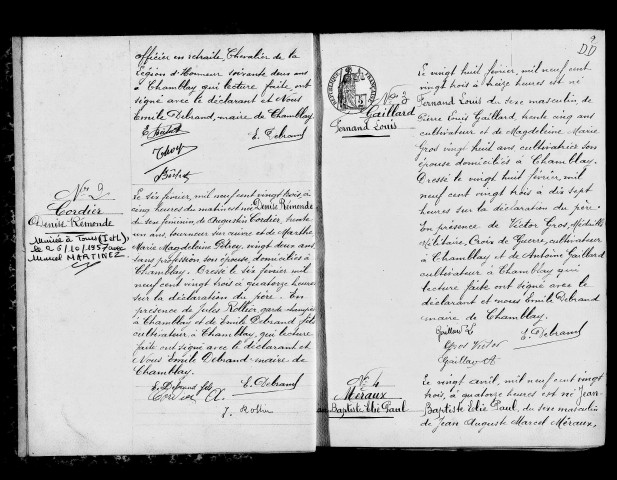 Officier en retraite, Chevalier de la
Légion d'Honneur soixante deux ans
à Chamblay qui lecture faite, ont
signé avec le déclarant et Nous
Emile Debrand, maire de Chamblay.
E. Debrand
Nos 2
Cordier
Denise Rémonde
Mariée à Tours (I et L)
le 26/10/1957 avec
Marcel MARTINEZ
Le six février, mil neuf cent vingt trois, à
cinq heures du matin est née Denise Rémonde
du sexe féminin, de Augustin Cordier, trente
un ans, tourneur sur cuivre et de Marthe
Marie Magdeleine Petrey, vingt deux ans
sans profession son épouse, domiciliés à
Chamblay. Dressé le six février mil
neuf cent vingt trois à quatorze heures
sur la déclaration du père. En
présence de Jules Rollier garde champêtre
à Chamblay et de Emile Debrand fils
cultivateur à Chamblay, qui lecture
faite ont signé avec le déclarant et
Nous Emile Debrand maire de
Chamblay.
E. Debrand fils
E. Debrand
Cordier A.
2
DD
RÉPUBLIQUE FRANÇAISE
Nos 3
Gaillard
Fernand Louis
Le vingt huit février, mil neuf cent
vingt trois à treize heures est né
Fernand Louis du sexe masculin, de
Pierre Louis Gaillard, trente cinq ans
cultivateur et de Magdeleine Marie
Gros vingt huit ans, cultivatrice son
épouse domiciliés à Chamblay.
Dressé le vingt huit février, mil
neuf cent vingt trois à dix sept
heures sur la déclaration du père.
En présence de Victor Gros, Médaille
Militaire, Croix de Guerre, cultivateur
à Chamblay et de Antoine Gaillard
cultivateur à Chamblay qui
lecture faite ont signé avec le
déclarant et nous Emile Debrand
maire de Chamblay.
Gaillard L
E. Debrand
Gros Victor
Gaillard A
No 4
Méraux
Jean Baptiste Elie Paul
Le vingt avril, mil neuf cent vingt
trois, à quatorze heures est né Jean-
Baptiste Elie Paul, du sexe masculin
de Jean Auguste Marcel Méraux,